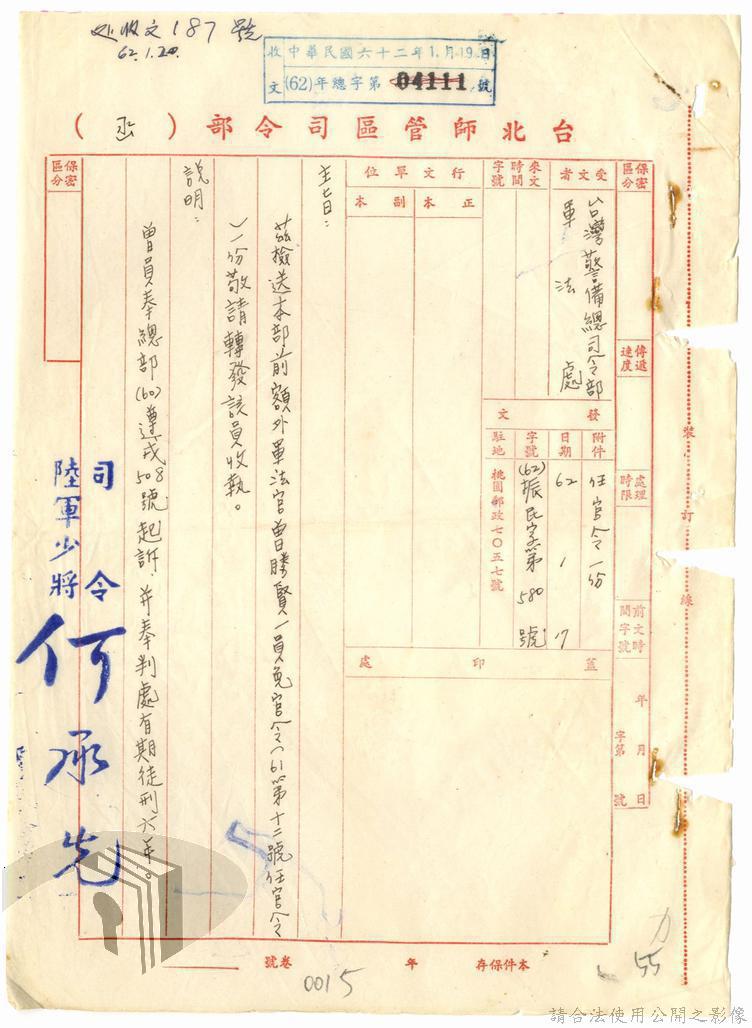 处收文187號
62.1.20.
收 中華民國六十二年1.月19日
文 (62)年總字第04111號
台北師管區司令部（函）
保密區分
受文者
台灣警備總司令部
軍法處
來文
時間
字號
行文單位
正本
副本
保密區分
傳遞速度
處理時限
前文時間字號
年 月 日
字第 號
發文
附件
任官令一份
日期
62 1 17
字號
(62)振民字第580號
駐地
桃園郵政七〇五七號
蓋印處
主旨：
茲檢送本部前額外軍法官曾勝賢一員免官令(61第十二號任官令
)一份敬請轉發該員收執。
說明：
曾員奉總部(60)遵戒508號起訴，并奉判處有期徒刑六年。
司令
陸軍少將
何承先
裝訂線
本件保存 年
卷號
0015
55
請合法使用公開之影像